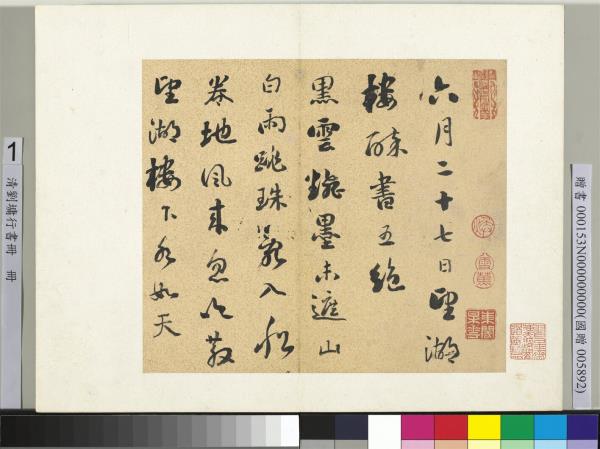 六月二十七日望湖
樓醉書五絕
黑雲翻墨未遮山
白雨跳珠亂入船
卷地風來忽吹散
望湖樓下水如天
1
清劉墉行書冊 冊
贈書 000153N000000000(國贈 005892)